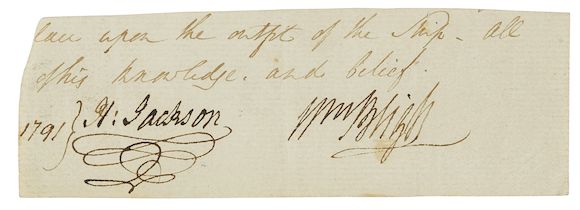 lace upon the outfit of the Ship. All
of his knowledge. and belief.
1791 } H: Jackson
Wm Bligh